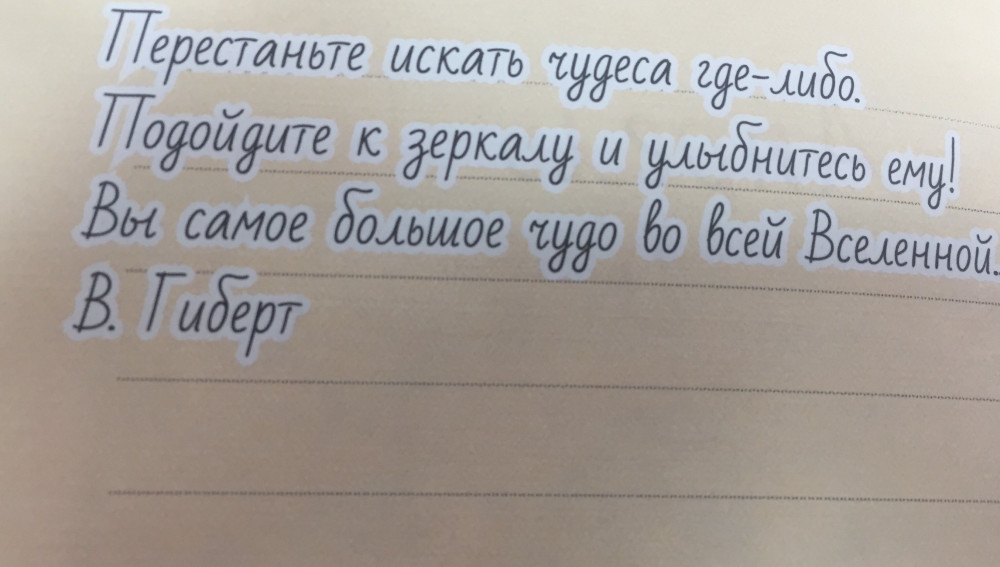 Перестаньте искать чудеса где-либо.
Подойдите к зеркалу и улыбнитесь ему!
Вы самое большое чудо во всей Вселенной.
В. Гиберт